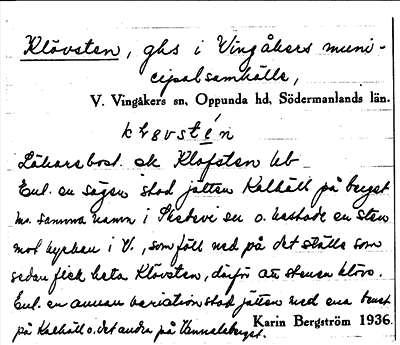 Klövsten, ghs i Vingåkers muni-
cipalsamhälle,
V. Vingåkers sn, Oppunda hd, Södermanlands län.
klevstén
Läkarebost. ek Klöfsten kb
Enl. en sägen stod jätten Kalhäll på berget
m. samma namn i Österåker sn o. kastade en sten
mot kyrkan i V., som föll ned på det ställe som
sedan fick heta Klövsten, därför att stenen klövs.
Enl. en annan variation stod jätten med ena benet
på Kalhäll o. det andra på
Karin Bergström 1936.